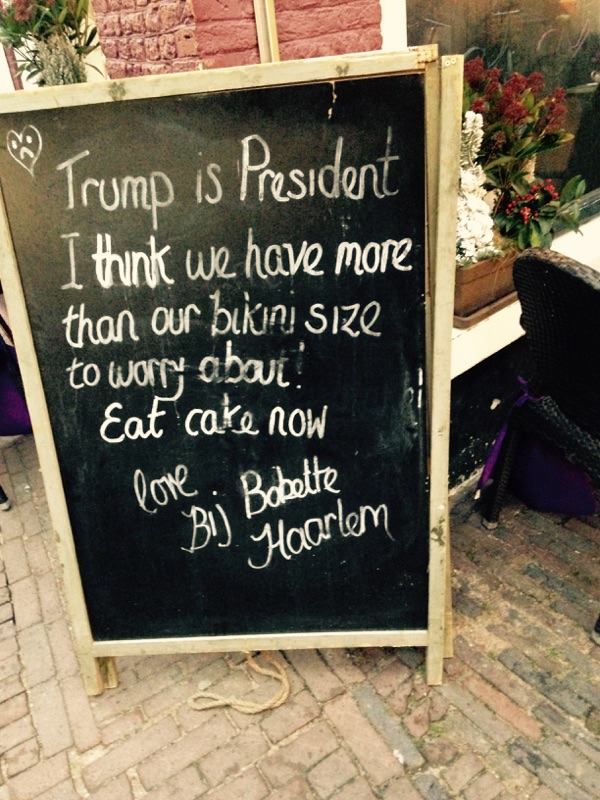 Trump is President
I think we have more
than our bikini size
to worry about!
Eat cake now
love
Bij Babette
Haarlem